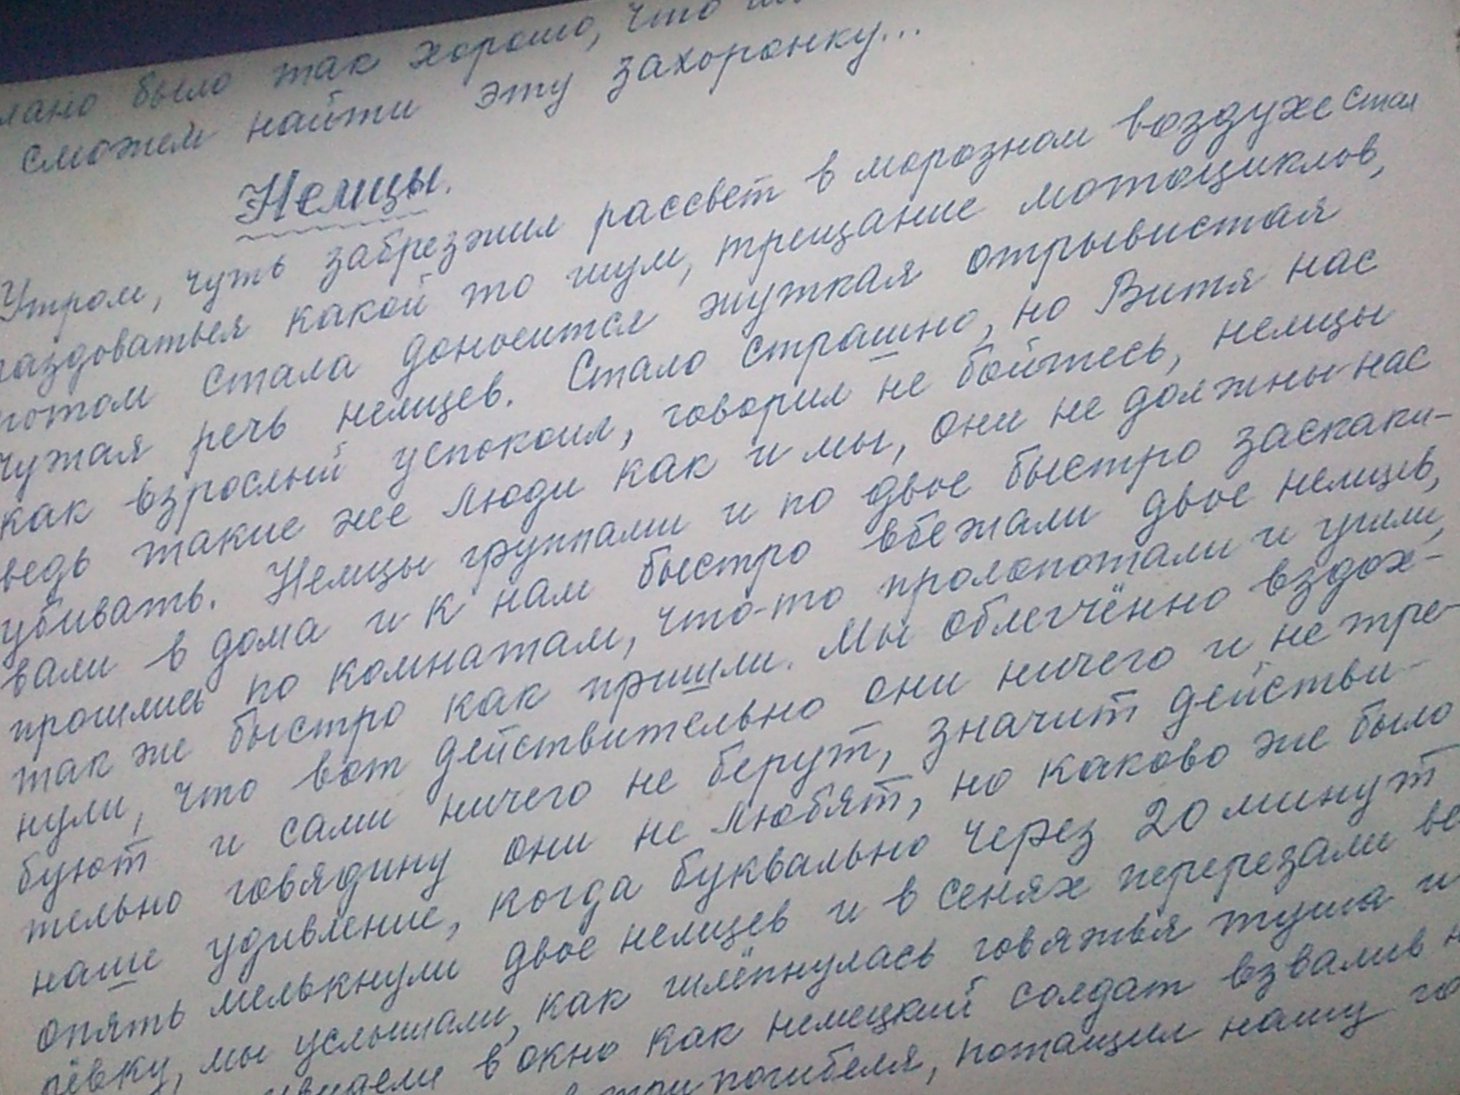 было так хорошо, что
сможем найти эту захоронку...
Немцы.
Утром, чуть забрезжил рассвет в морозном воздухе стал
раздоваться какой то шум, трещание мотоциклов,
потом стала доносится жуткая отрывистая
чужая речь немцев. Стало страшно, но Витя нас
как взрослый успокоил, говорил не бойтесь, немцы
ведь такие же люди как и мы, они не должны нас
убивать. Немцы группами и по двое быстро заскаки-
вали в дома и к нам быстро вбежали двое немцев,
прошлись по комнатам, что-то пролопотали и ушли,
так же быстро как пришли. Мы облегчённо вздох-
нули, что вот действительно они ничего и не тре-
буют и сами ничего не берут, значит действи-
тельно говядину они не любят, но каково же было
наше удивление, когда буквально через 20 минут
опять мелькнули двое немцев и в сенях перерезали ве
рёвку, мы услышали, как шлёпнулась говяжья туша и
в окно как немецкий солдат взвалив
три погибеля, потащил нашу го